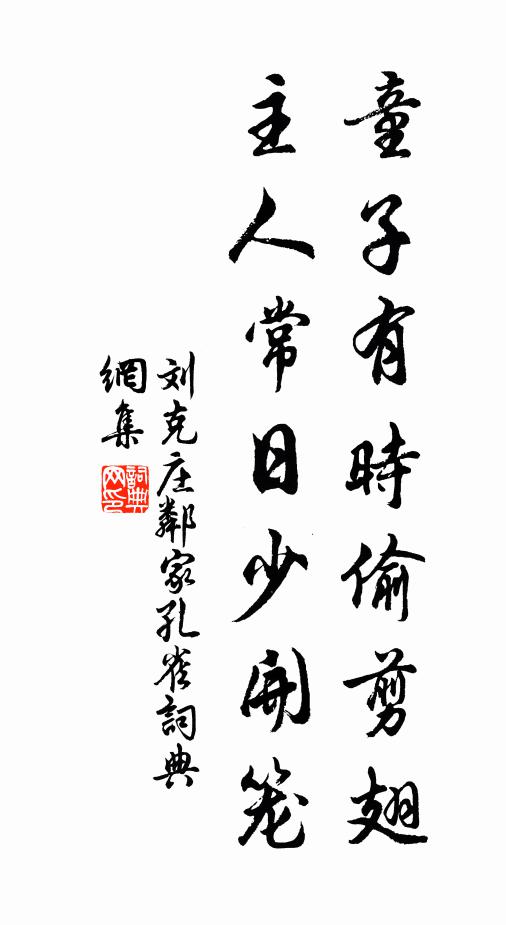 童子有時偷剪翅
主人常日少開笼
刘克庄鄰家孔雀詞典
網集
詞典網印